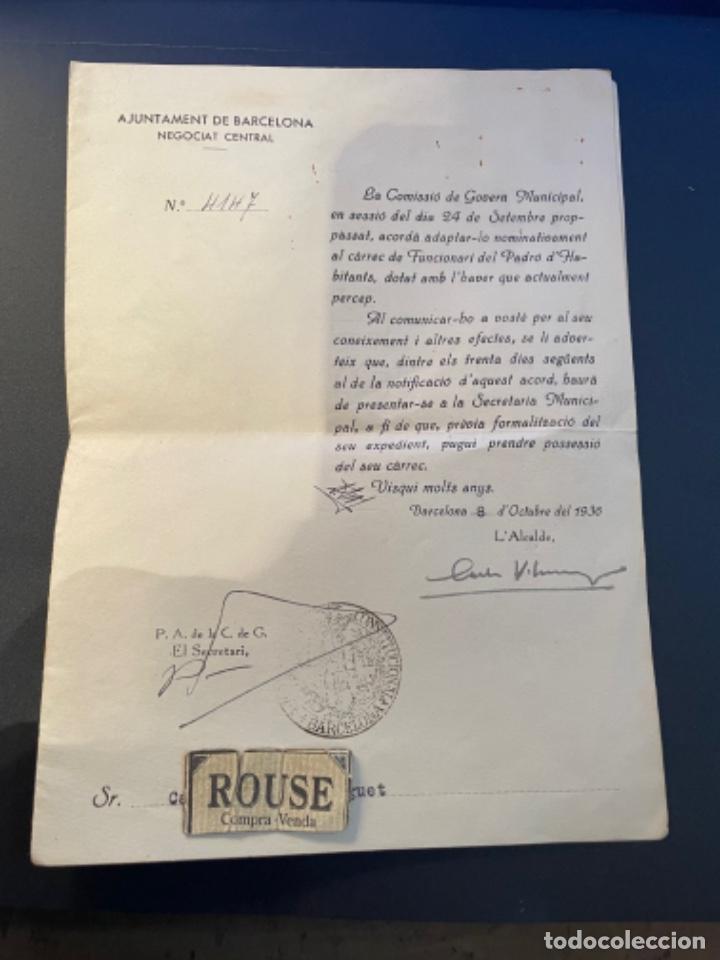 AJUNTAMENT DE BARCELONA
NEGOCIAT CENTRAL
N.º 4147
La Comissió de Govern Municipal,
en sessió del dia 24 de Setembre prop-
passat, acordà adaptar-lo nominativament
al càrrec de Funcionari del Padró d'Ha-
bitants, dotat amb l'haver que actualment
percep.
Al comunicar-ho a vostè per al seu
coneixement i altres efectes, se li adver-
teix que, dintre els trenta dies següents
al de la notificació d'aquest acord, haurà
de presentar-se a la Secretaria Munici-
pal, a fi de que, prèvia formalització del
seu expedient, pugui prendre possessió
del seu càrrec.
Visqui molts anys.
Barcelona 8 d'Octubre del 1936
L'Alcalde,
P. A. de la C. de G.
El Secretari,
CONSTITUCIONAL
BARCELONA
Sr. guet
ROUSE
Compra-Venda
todocoleccion